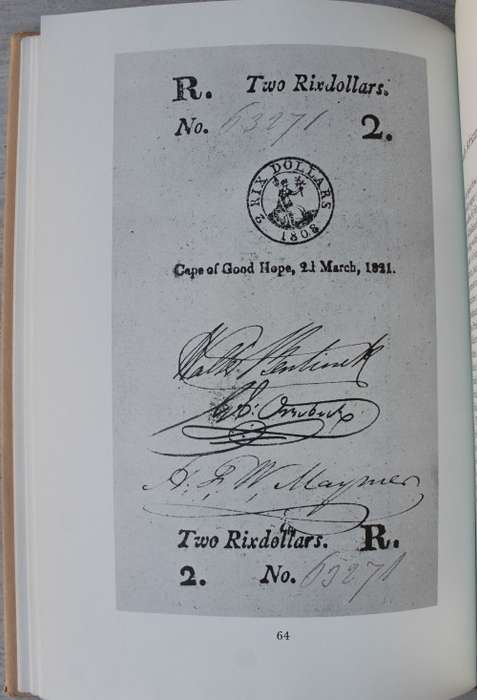 R. Two Rixdollars.
No. 63271 2.
2 RIX DOLLARS
1808
Cape of Good Hope, 21 March, 1821.
Walter Bentinck
H. F. W. Maynier
Two Rixdollars. R.
2. No. 63271
64